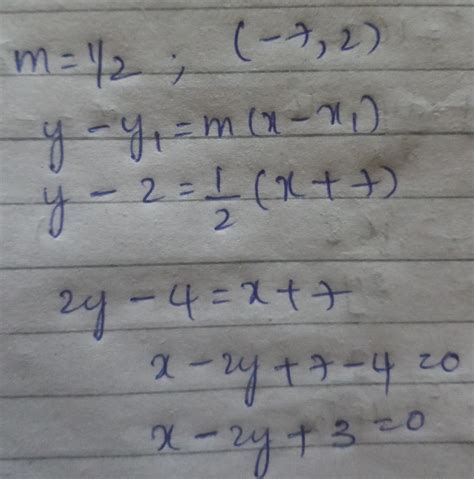 m = 1/2 ; (-7, 2)
y - y₁ = m(x - x₁)
y - 2 = 1/2 (x + 7)
2y - 4 = x + 7
x - 2y + 7 - 4 = 0
x - 2y + 3 = 0